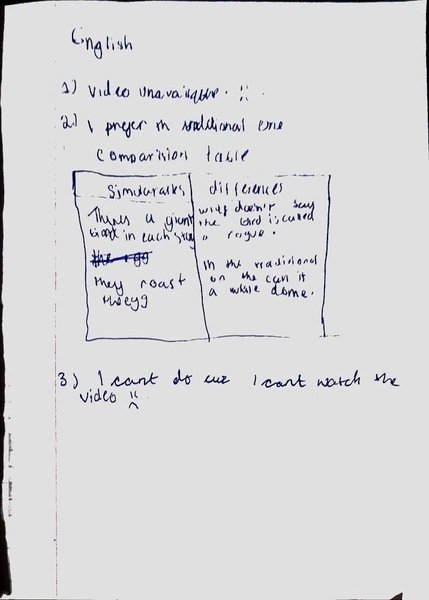 English
1) Video Unavailable. :(
2) I prefer th traditional one
Comparision table
Similarities
differences
Theres a giant
bird in each story
the egg
they roast
the egg
doesn't say
the bird is called
a rogue.
In the tradicional
on the can it
a whole dome.
3) I cant do cuz I cant watch the
video :(